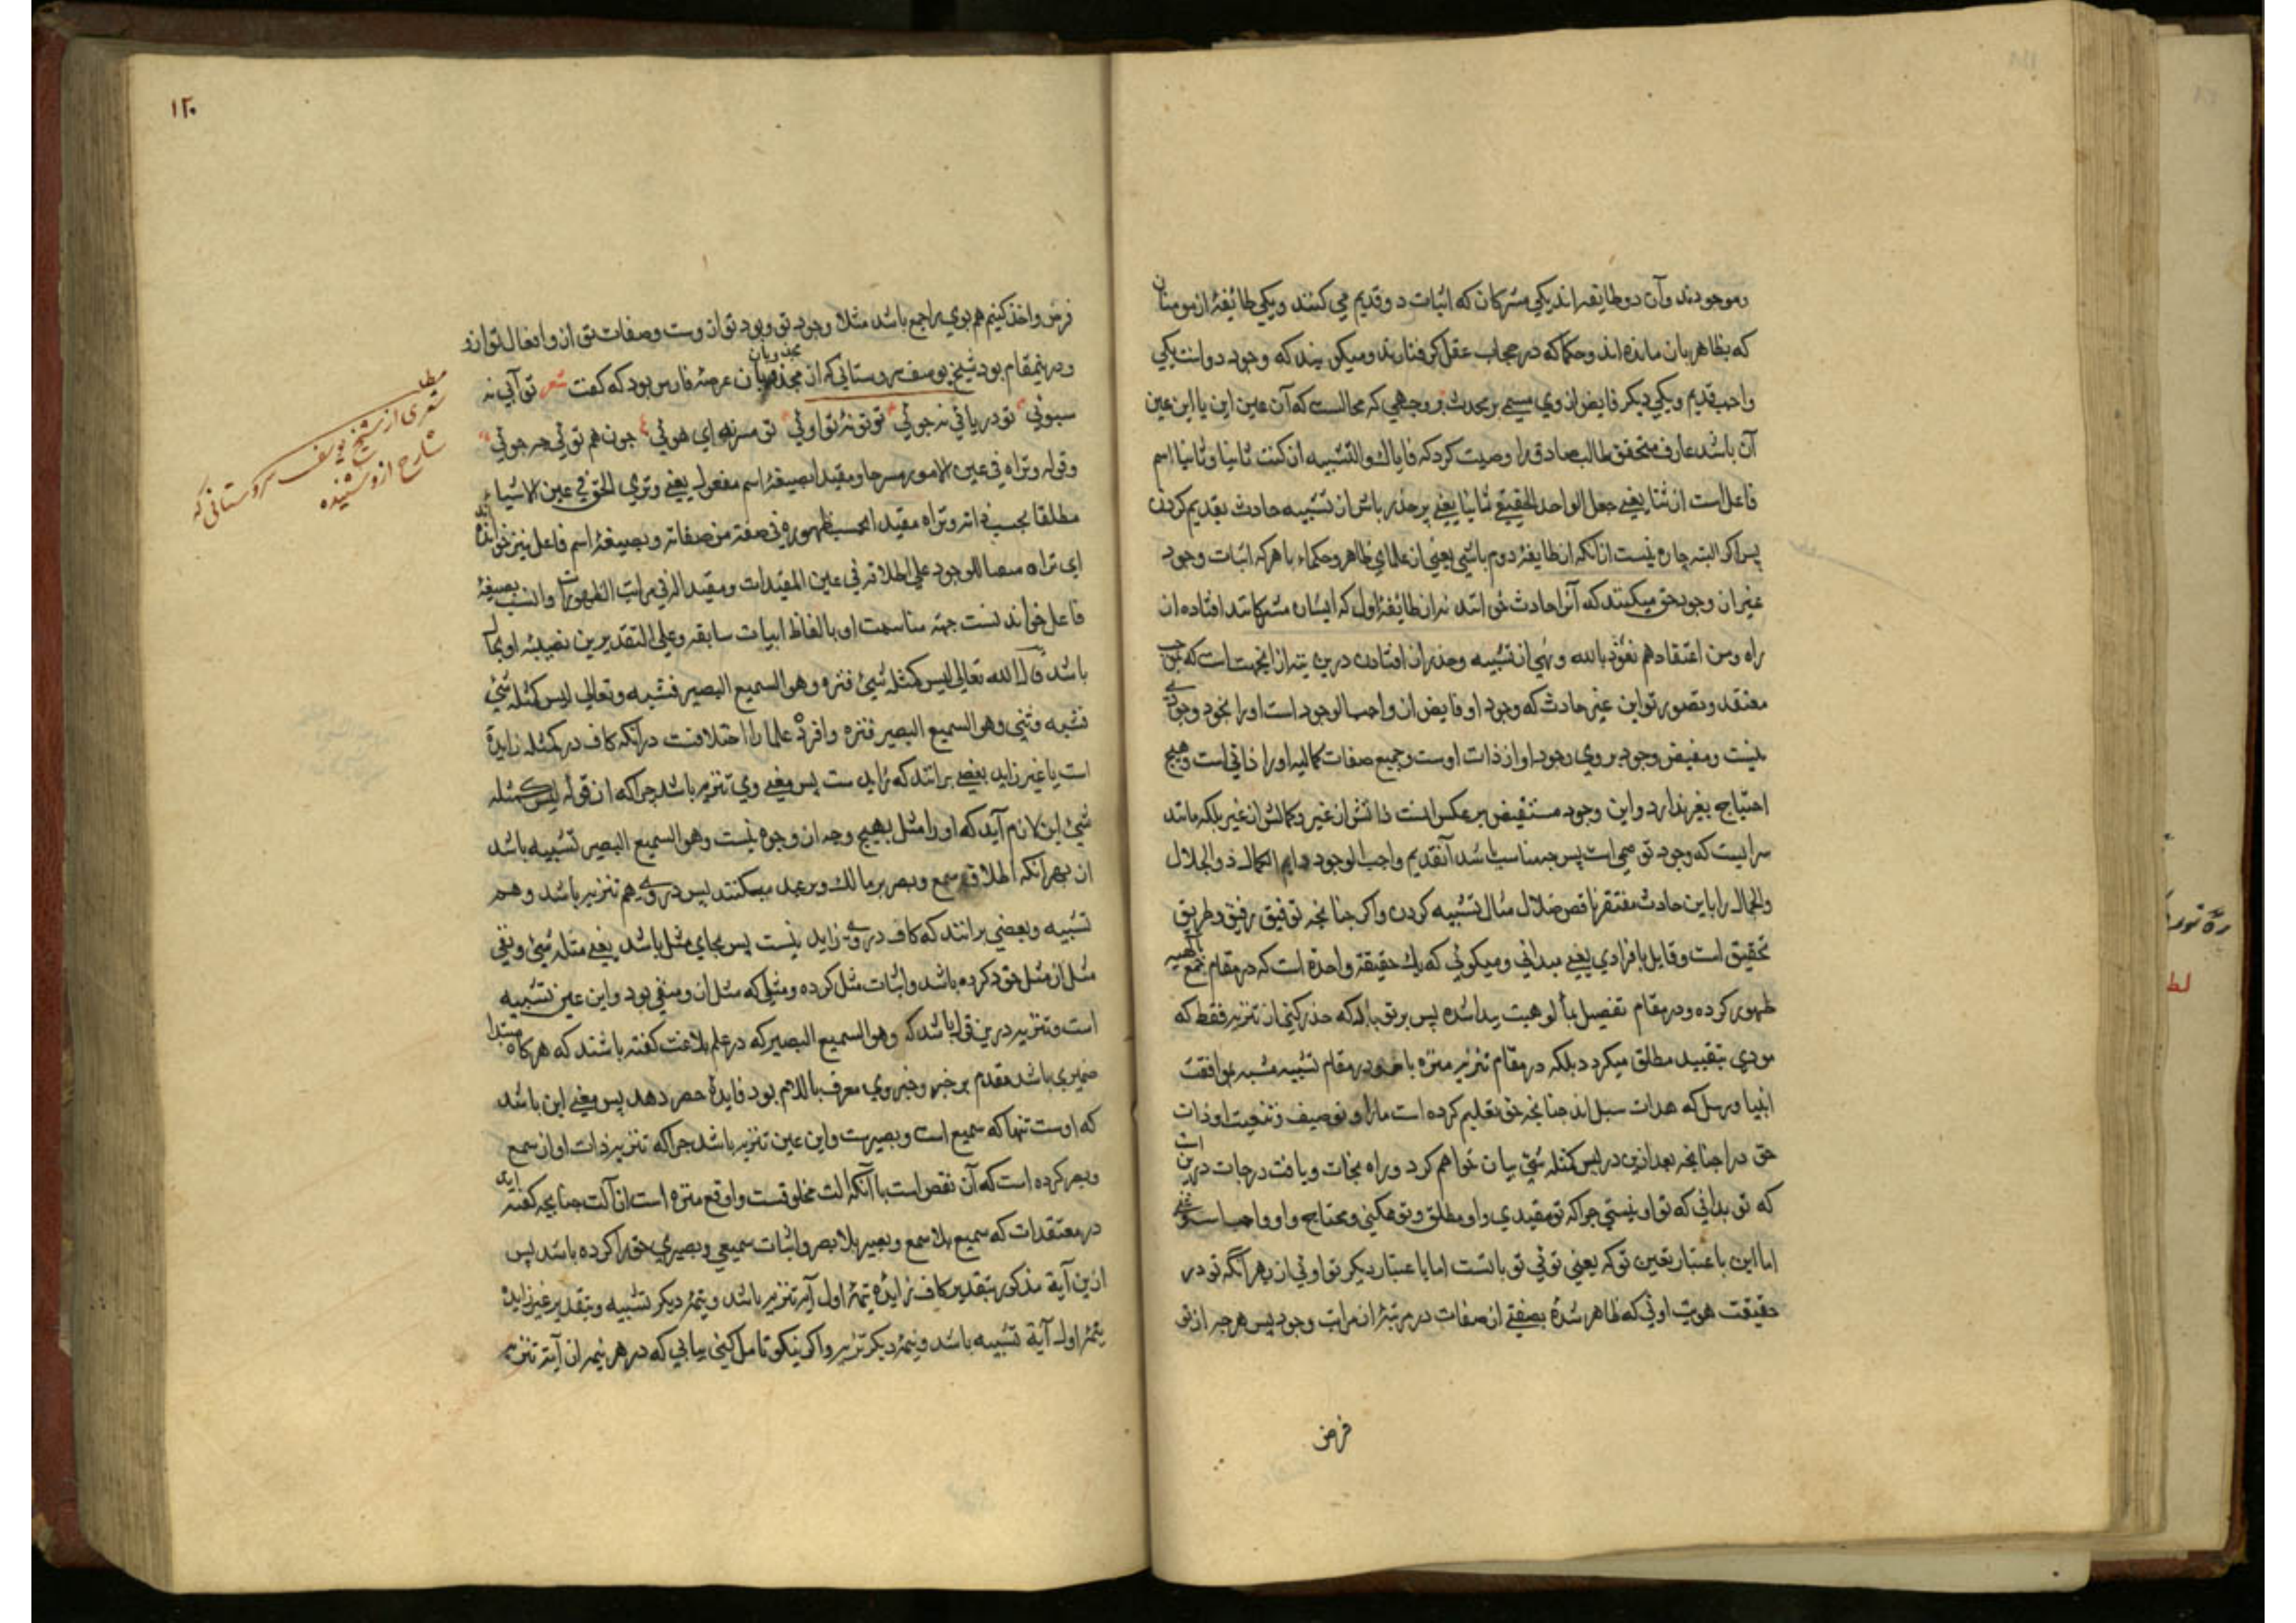 وموجودند وآن دو طایفه اند یکی مشرکان که اثبات دو قدیم می کنند ویکی طائفهٔ از مومنان
که بظاهر بان مانده اند وحکما که در حجاب عقل کرفتارند ومیکویند که وجود دواست یکی
واجب قدیم ویکی دیکر فایض از وی مسمی بر محدث بر وجهی که محالست که آن عین این یا این عین
آن باشد عارف متحقق طالب صادق را وصیت کرد که فایاك والتشبیه ان کنت ثانیا وثانیا اسم
فاعل است از ثنا یعنی جعل الواحد الحقیقی ثانیا یعنی بر حذر باش از تشبیه حادث بقدیم کردن
پس اکر البته چاره نیست ازانکه از طایفهٔ دوم باشی یعنی از علمای ظاهر وحکماء با هرکه اثبات وجود
غیر از وجود حق میکنند که آنرا حادث خوانند نه از طائفهٔ اول که ایشان مشرکانند افتاده از
راه ومن اعتقادهم نعوذ بالله ونهی از تشبیه وحذر از افتادن درین تیه ازانجهت است که
معتقد وتصور تو این غیر حادث که وجود او فایض از واجب الوجود است اورا بخود وجودی
نیست ومفیض وجود بر وی وجود او از ذات اوست وجمیع صفات کمالیه اورا ذاتی است وهیچ
احتیاج بغیر ندارد واین وجود مستفیض برعکس انست ذاتش از غیر وکمالش از غیر بلکه مانند
سرابیست که وجود توهمی است پس چه مناسب باشد آنقدیم واجب الوجود دایم الکمال ذو الجلال
والجمال را باین حادث مفتقر ناقص ضلال مثال تشبیه کردن واکر چنانچه توفیق رفیق وطریق
تحقیق است وقایل بافرادی یعنی میدانی ومیکوئی که یك حقیقة واحدة است که در مقام جمع بآلهیه
ظهور کرده ودر مقام تفصیل بمألوهیت پیدا شده پس بر تو باد که حذر کنی از تنزیه فقط که
مودی بتقیید مطلق میکردد بلکه در مقام تنزیه منزه باش ودر مقام تشبیه مشبه بموافقت
انبیا ورسل که هدات سبل اند چنانچه حق تعلیم کرده است مارا وتوصیف وتنعیت او ذات
حق را چنانچه بعد ازین در لیس کمثله شئ بیان خواهم کرد وراه نجات ویافت درجات درین است
که تو بدانی که تو او نیستی چرا که تو مقیدی واو مطلق وتو ممکنی ومحتاج واو واجب
اما این باعتبار تعین توکه یعنی توئی تو بانست اما باعتبار دیکر تو اوئی از بهر آنگه تو در
حقیقت هویت اوئی که ظاهر شدهٔ بصفتی از صفات در مرتبهٔ از مراتب وجود پس هرچه از تو
فرض
١٢٠
فرض واخذ کنیم هم بوی راجع باشد مثلا وجود تو وبود تو ازوست وصفات تو ازو افعال تو ازو
ودرینمقام بود شیخ یوسف سروستانی که از مجذوبان عرصهٔ فارس بود که کفت شعر تو آبی نه
مجذوبان
سبوئی تو دریائی نه جوئی تو تو نهٔ تو اوئی تو مزن های هوئی چون هم توئی چه جوئی
وقوله وتراه فی عین الامور مسرحا ومقیدا بصیغهٔ اسم مفعول یعنی وتری الحق فی عین الاشیاء
مطلقا بحسب ذاته وتراه مقیدا بحسب ظهوره فی صفة من صفاته وبصیغهٔ اسم فاعل نیز خوانده اند
ای تراه مبقیا للوجود علی اطلاقه فی عین المقیدات ومقیدا له فی مراتب الظهورات وانسب بصیغهٔ
فاعل خواندنست جهة مناسبت او بالفاظ ابیات سابقه وعلی التقدیرین
باشد قال الله تعالی لیس کمثله شیئ فنزه وهو السمیع البصیر فشبه وتعالی لیس کمثله شئ
فشبه وثنی وهو السمیع البصیر فنزه وافرد علما را اختلافست درآنکه کاف در کمثله زایدة
است یا غیر زاید بعضی برانند که زاید ست پس معنی وی تنزیه باشد چرا که از قوله لیس کمثله
شئ این لازم آید که اورا مثل بهیچ وجه از وجوه نیست وهو السمیع البصیر تشبیه باشد
از بهر آنکه اطلاق سمع وبصر بر مالك وبر عبد میکنند پس در وی هم تنزیه باشد وهم
تشبیه وبعضی برانند که کاف در وی زاید نیست پس بجای مثل باشد یعنی مثله شئ ونفی
مثل از مثل خود کرده باشد واثبات مثل کرده ومثلی که مثل ازو منفی بود واین عین تشبیه
است وتنزیه درین قول باشد که وهو السمیع البصیر که در علم بلاغت کفته باشند که هرکاه مبتدا
ضمیری باشد مقدم بر خبر وخبر وی معرف بالام بود فایدهٔ حصر دهد پس معنی این باشد
که اوست تنها که سمیع است وبصیرست واین عین تنزیه باشد چرا که تنزیه ذات او از سمع
وبصر کرده است که آن نقص است با آنکه آلت مخلوقست واو قع منزه است از آلت چنانچه کفته اند
در معتقدات که سمیع بلا سمع وبصیر بلا بصر واثبات سمیعی وبصیری حق را کرده باشد پس
ازین آیة مذکور بتقدیر کاف زایده نیمهٔ اول آیه تنزیه باشد ونیمهٔ دیکر تشبیه وبتقدیر غیر زایده
نیمهٔ اول آیة تشبیه باشد ونیمهٔ دیکر تنزیه واکر نیکو تامل کنی بیابی که در هر نیمه از آیة تنزیه
مطلب
شعری از شیخ یوسف سروستانی که
شارح ازو شنیده